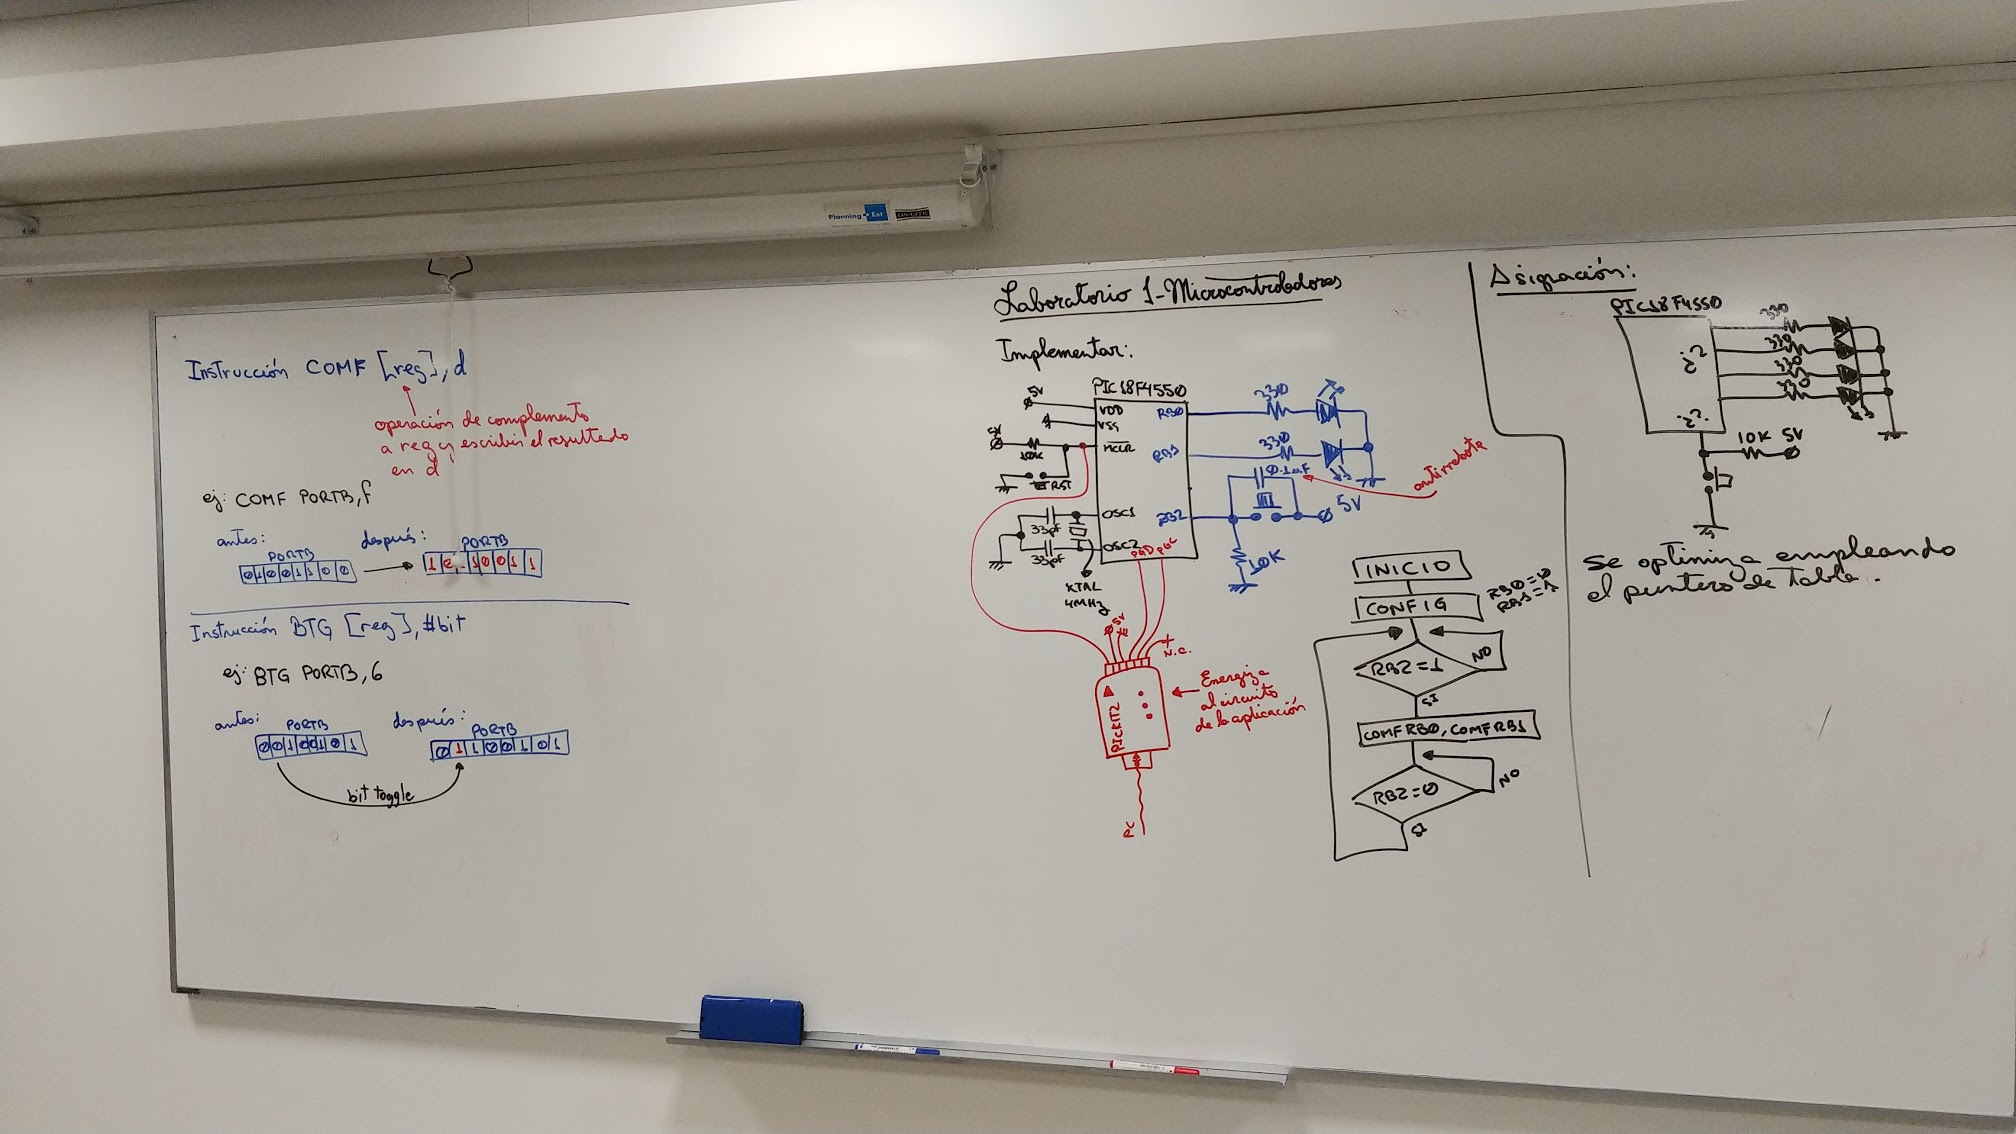 Planning Est
DA-LITE
Instrucción COMF [reg], d
operación de complemento
a reg y escribir el resultado
en d
ej: COMF PORTB, f
antes:
PORTB
0 1 0 0 1 1 0 0
después:
PORTB
Instrucción BTG [reg], #bit
ej: BTG PORTB, 6
antes:
PORTB
0 0 1 0 0 1 0 1
después:
PORTB
0 1 1 0 0 1 0 1
bit toggle
Laboratorio 1 - Microcontroladores
Implementar:
PIC18F4550
5V
VDD
VSS
5V
10K
MCLR
RST
OSC1
33pf
OSC2
33pf
XTAL
4MHz
PGD
PGC
RB0
330
RB1
330
0.1uF
antirrebote
RB2
5V
10K
5V
N.C.
PICKIT2
Energiza
al circuito
de la aplicación
PC
INICIO
CONFIG
RB0=0
RB1=1
RB2=1
NO
SI
COMF RB0, COMF RB1
RB2=0
NO
SI
Asignación:
PIC18F4550
330
330
330
330
¿?
¿?
10K
5V
Se optimiza empleando
el puntero de Tabla.